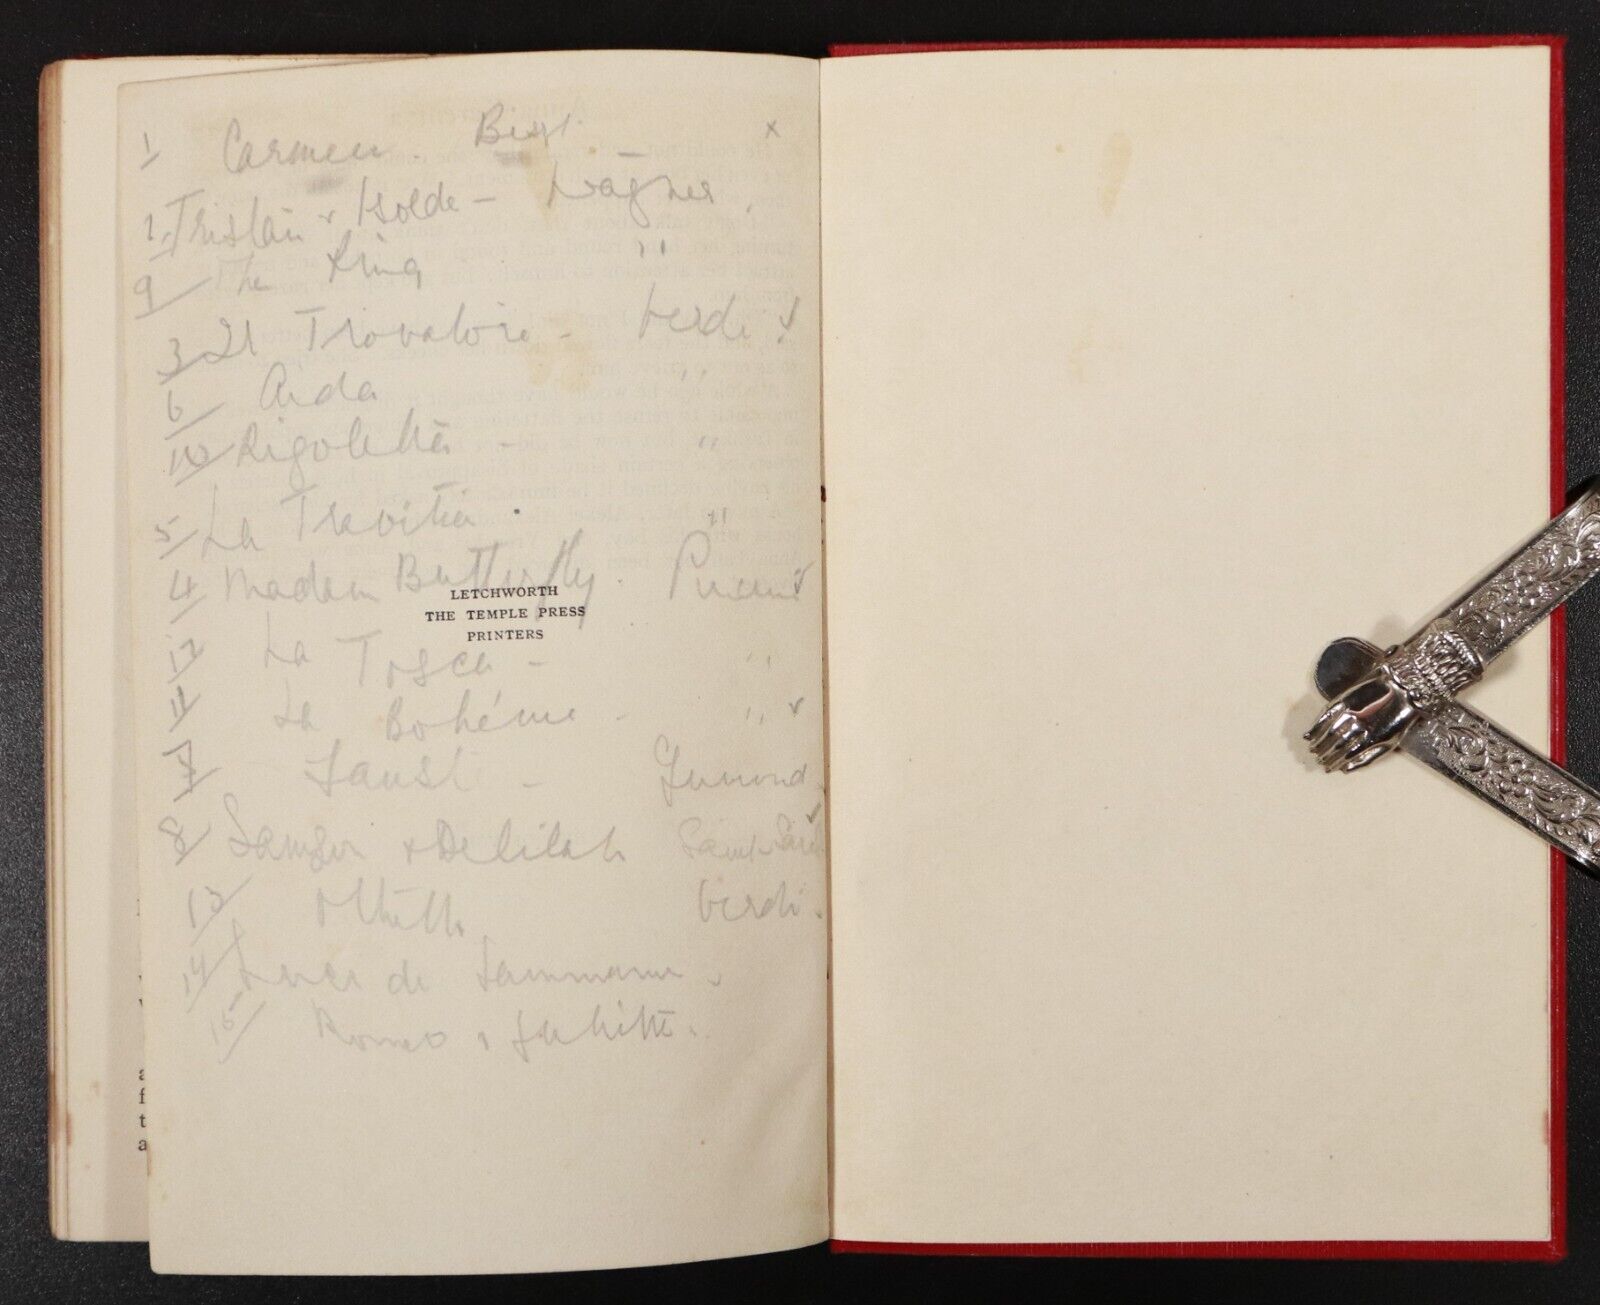 1 Carmen. Bizet. x
2 Tristan & Isolde - Wagner.
9 The Ring "
3 Il Trovatore - Verdi
6 Aida "
10 Rigoletto - "
5 La Travitia "
4 Madam Butterfly. Puccini
LETCHWORTH
THE TEMPLE PRESS
PRINTERS
12 La Tosca - "
11 La Bohéme - "
7 Faust - Gounod
8 Samson & Delilah Saint Saens
13 Othello Verdi.
14 Lucia de Lammamur
15 Romeo & Juliette.